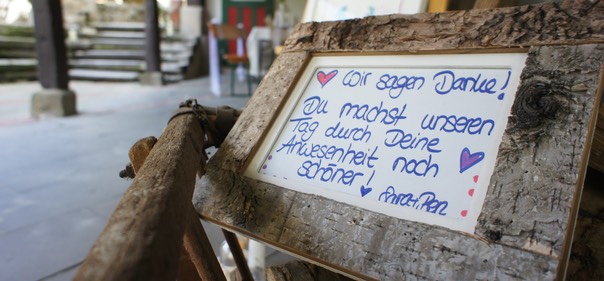 Wir sagen Danke!
Du machst unseren
Tag durch Deine
Anwesenheit noch
schöner!